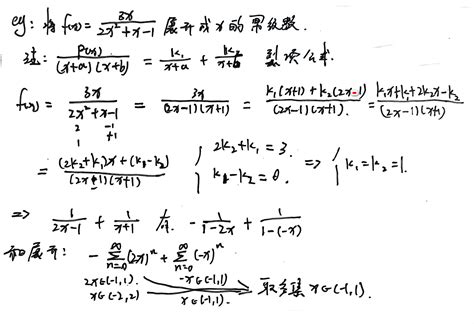 eg: 将 f(x) = 3x / (2x²+x-1) 展开成 x 的幂级数.
注: P(x) / (x+a)(x+b) = k₁ / (x+a) + k₂ / (x+b) 裂项公式.
f(x) = 3x / (2x²+x-1) = 3x / (2x-1)(x+1) = k₁(x+1)+k₂(2x-1) / (2x-1)(x+1). = k₁x+k₁+2k₂x-k₂ / (2x-1)(x+1)
2 -1
1 1
= (2k₂+k₁)x+(k₁-k₂) / (2x-1)(x+1) { 2k₂+k₁=3. k₁-k₂=0. => { k₁=k₂=1.
=> 1/(2x-1) + 1/(x+1) - 1/(1-2x) + 1/(1-(-x))
展开: - ∑_{n=0}^{∞} (2x)^n + ∑_{n=0}^{∞} (-x)^n
2x∈(-1,1). -x∈(-1,1)
x∈(-2,2) x∈(-1,1). 取交集 x∈(-1,1).